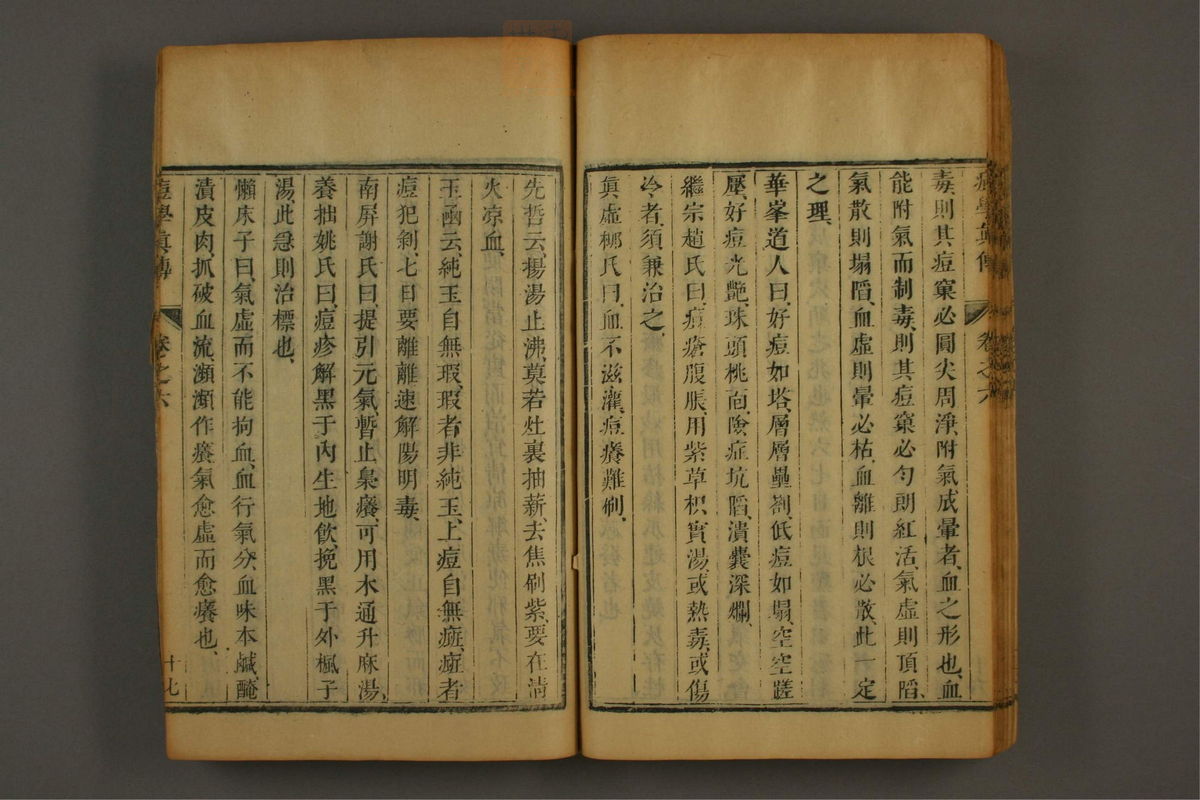 痘學眞傳 卷之六
毒、則其痘窠必圓尖周淨、附氣成暈者、血之形也、血
能附氣而制毒、則其痘窠必勻朗紅活、氣虛則頂陷、
氣散則塌陷、血虛則暈必枯、血離則根必散、此一定
之理、
華峯道人曰、好痘如塔、層層壘劄、低痘如塌、空空蹉
壓、好痘光艶、珠頭桃萢、險症坑陷、潰囊深爛、
繼宗趙氏曰、痘瘡腹脹、用紫草枳實湯、或熱毒、或傷
冷者、須兼治之、
眞虛鄉氏曰、血不滋灌、痘癢難刷、
先哲云、揚湯止沸、莫若灶裏抽薪、去焦刷紫、要在淸
火凉血、
玉函云、純玉自無瑕、瑕者非純玉、上痘自無疵、疵者
痘犯剝、七日要離離、速解陽明毒、
南屏謝氏曰、提引元氣、暫止梟癢、可用水通升麻湯、
養拙姚氏曰、痘疹解黑于內、生地飲、挽黑于外、楓子
湯、此急則治標也、
懶床子曰、氣虛而不能狥血、血行氣分、血味本鹹、醃
漬皮肉、抓破血流、瀕瀕作癢、氣愈虛而愈癢也、
痘學眞傳 卷之六 十七